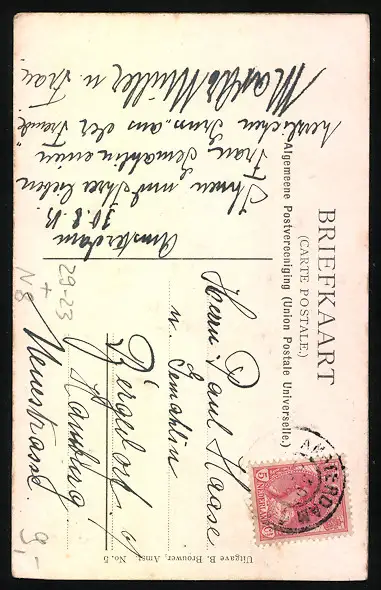 BRIEFKAART
(CARTE POSTALE.)
Algemeene Postvereeniging (Union Postale Universelle.)
Amsterdam
30.8.13.
Ihnen und Ihrer lieben
Frau Gemahlin einen
herzlichen Gruss aus der Fremde
Martha Müller u. Frau
Herrn Paul Haase
u. Gemahlin
Bergedorf
Hamburg
Neuestrasse
29-23
+
N8
9,-
AMSTERDAM
5
Uitgave B. Brouwer, Amst. No. 5